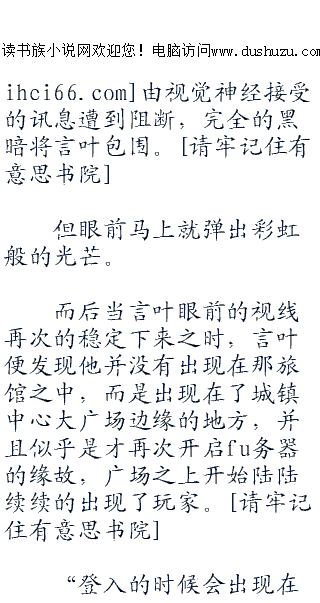 读书族小说网欢迎您！电脑访问www.dushuzu.com
ihci66.com]由视觉神经接受
的讯息遭到阻断，完全的黑
暗将言叶包围。[请牢记住有
意思书院]
但眼前马上就弹出彩虹
般的光芒。
而后当言叶眼前的视线
再次的稳定下来之时，言叶
便发现他并没有出现在那旅
馆之中，而是出现在了城镇
中心大广场边缘的地方，并
且似乎是才再次开启fu务器
的缘故，广场之上开始陆陆
续续的出现了玩家。[请牢记
住有意思书院]
“登入的时候会出现在